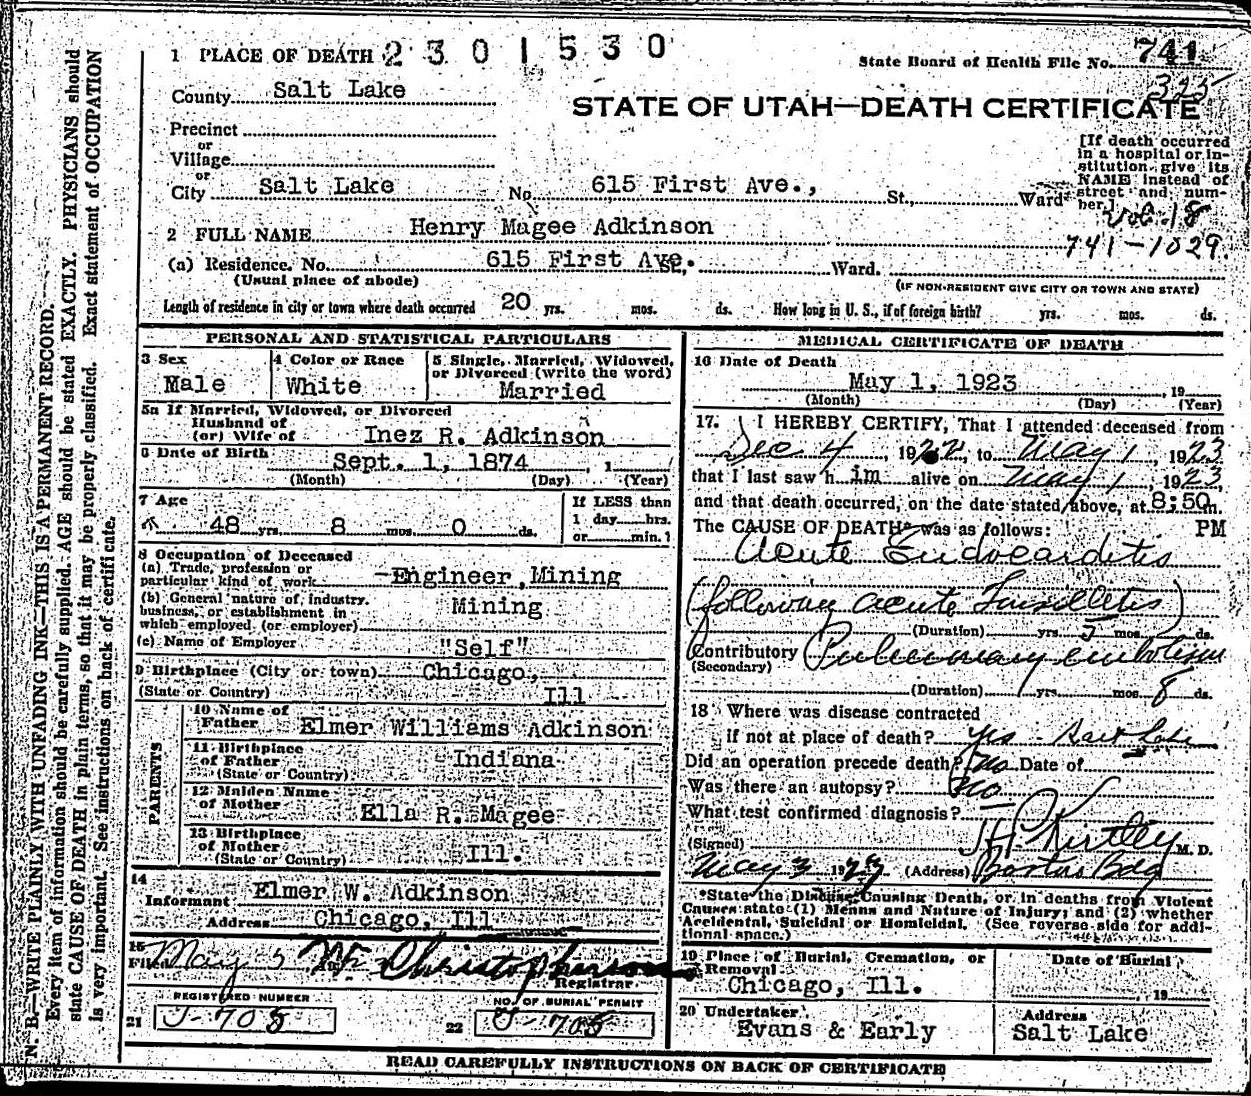 1 PLACE OF DEATH 2301530
State Board of Health File No. 741
325
County Salt Lake
STATE OF UTAH—DEATH CERTIFICATE
Precinct
or
Village
or
City Salt Lake No. 615 First Ave., St., Ward
[If death occurred
in a hospital or in-
stitution give its
NAME instead of
street and num-
ber.]
Vol. 18
741-1029.
2 FULL NAME Henry Magee Adkinson
(a) Residence. No. 615 First Ave. St., Ward.
(Usual place of abode)
(IF NON-RESIDENT GIVE CITY OR TOWN AND STATE)
Length of residence in city or town where death occurred 20 yrs. mos. ds. How long in U. S., if of foreign birth? yrs. mos. ds.
PERSONAL AND STATISTICAL PARTICULARS
3 Sex
Male
4 Color or Race
White
5 Single, Married, Widowed,
or Divorced (write the word)
Married
5a If Married, Widowed, or Divorced
Husband of
(or) Wife of Inez R. Adkinson
6 Date of Birth Sept. 1, 1874 , 1
(Month) (Day) (Year)
7 Age
48 yrs. 8 mos. 0 ds.
If LESS than
1 day hrs.
or min.?
8 Occupation of Deceased
(a) Trade, profession or
particular kind of work -Engineer, Mining
(b) General nature of industry,
business, or establishment in
which employed (or employer) Mining
(c) Name of Employer "Self"
9 Birthplace (City or town) Chicago,
(State or Country) Ill
PARENTS
10 Name of
Father Elmer Williams Adkinson
11 Birthplace
of Father Indiana
(State or Country)
12 Maiden Name
of Mother Ella R. Magee
13 Birthplace
of Mother Ill.
(State or Country)
14
Informant Elmer W. Adkinson
Address Chicago, Ill.
15
Filed May 5 Christopherson
Registrar
REGISTERED NUMBER
21 J-705
NO. OF BURIAL PERMIT
22 J-705
MEDICAL CERTIFICATE OF DEATH
16 Date of Death
May 1, 1923 , 19
(Month) (Day) (Year)
17. I HEREBY CERTIFY, That I attended deceased from
Dec 4, 1922, to May 1, 1923
that I last saw him alive on May 1, 1923,
and that death occurred, on the date stated above, at 8:50 m.
The CAUSE OF DEATH* was as follows: PM
Acute Endocarditis
(following acute Tonsillitis)
(Duration) yrs. 5 mos. ds.
Contributory Pulmonary embolism
(Secondary)
(Duration) yrs. mos. 8 ds.
18 Where was disease contracted
if not at place of death? yes - Salt Lake
Did an operation precede death? no Date of
Was there an autopsy? no
What test confirmed diagnosis?
(Signed) Kirtley M. D.
May 3 1923 (Address) Boston Bdg
*State the Disease Causing Death, or in deaths from Violent
Causes state (1) Means and Nature of Injury; and (2) whether
Accidental, Suicidal or Homicidal. (See reverse side for addi-
tional space.)
19 Place of Burial, Cremation, or
Removal
Chicago, Ill.
Date of Burial
, 19
20 Undertaker
Evans & Early
Address
Salt Lake
READ CAREFULLY INSTRUCTIONS ON BACK OF CERTIFICATE
N. B.—WRITE PLAINLY WITH UNFADING INK—THIS IS A PERMANENT RECORD.
Every item of information should be carefully supplied. AGE should be stated EXACTLY. PHYSICIANS should
state CAUSE OF DEATH in plain terms, so that it may be properly classified. Exact statement of OCCUPATION
is very important. See instructions on back of certificate.